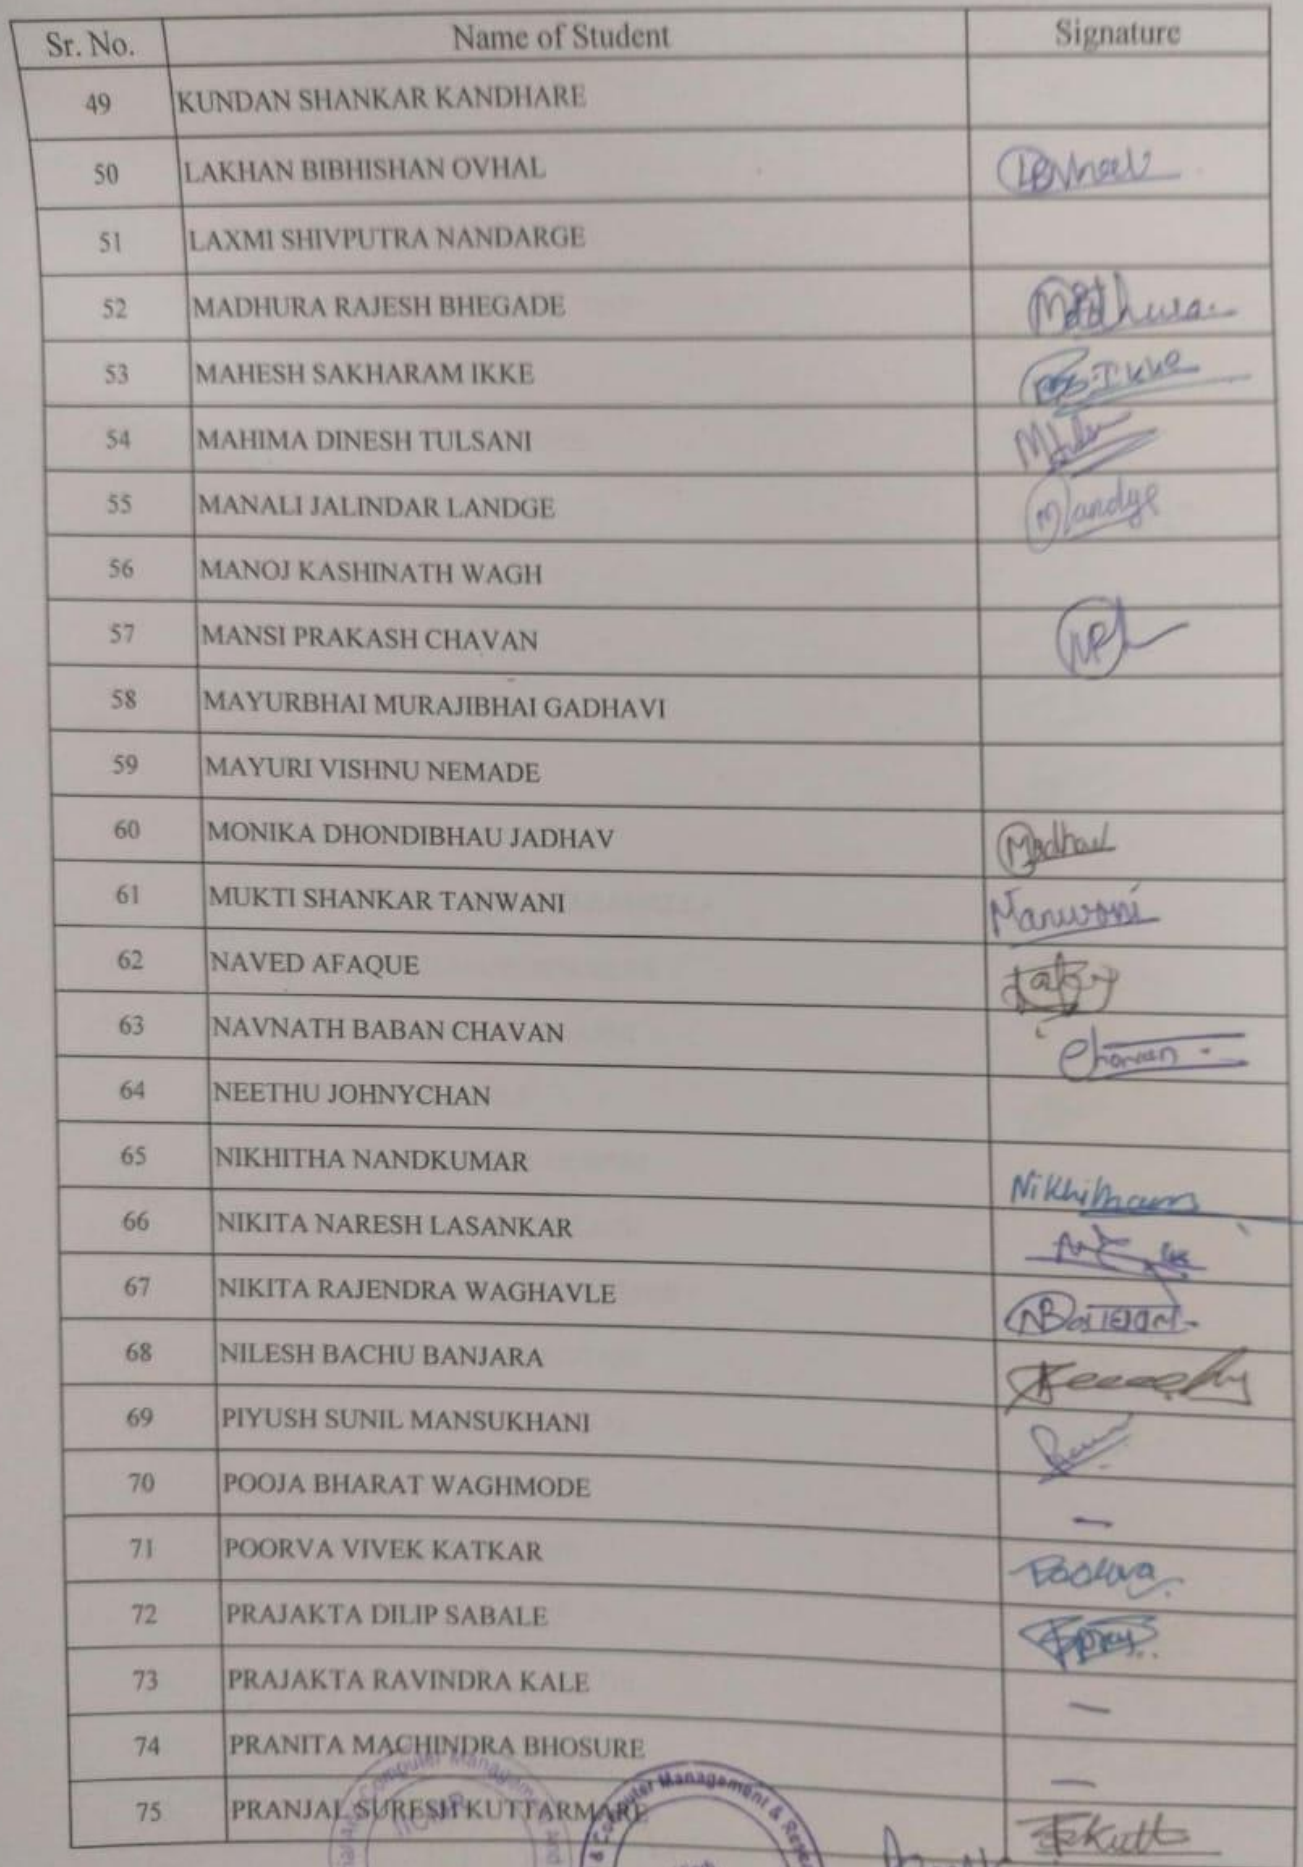 Sr. No. Name of Student Signature
49 KUNDAN SHANKAR KANDHARE
50 LAKHAN BIBHISHAN OVHAL
51 LAXMI SHIVPUTRA NANDARGE
52 MADHURA RAJESH BHEGADE Madhura
53 MAHESH SAKHARAM IKKE Ikke
54 MAHIMA DINESH TULSANI
55 MANALI JALINDAR LANDGE MLandge
56 MANOJ KASHINATH WAGH
57 MANSI PRAKASH CHAVAN
58 MAYURBHAI MURAJIBHAI GADHAVI
59 MAYURI VISHNU NEMADE
60 MONIKA DHONDIBHAU JADHAV
61 MUKTI SHANKAR TANWANI
62 NAVED AFAQUE
63 NAVNATH BABAN CHAVAN Chavan
64 NEETHU JOHNYCHAN
65 NIKHITHA NANDKUMAR
66 NIKITA NARESH LASANKAR
67 NIKITA RAJENDRA WAGHAVLE
68 NILESH BACHU BANJARA
69 PIYUSH SUNIL MANSUKHANI
70 POOJA BHARAT WAGHMODE —
71 POORVA VIVEK KATKAR Poorva
72 PRAJAKTA DILIP SABALE
73 PRAJAKTA RAVINDRA KALE —
74 PRANITA MACHINDRA BHOSURE —
75 PRANJAL SURESH KUTTARMARE
Computer Management and
& Computer Management &